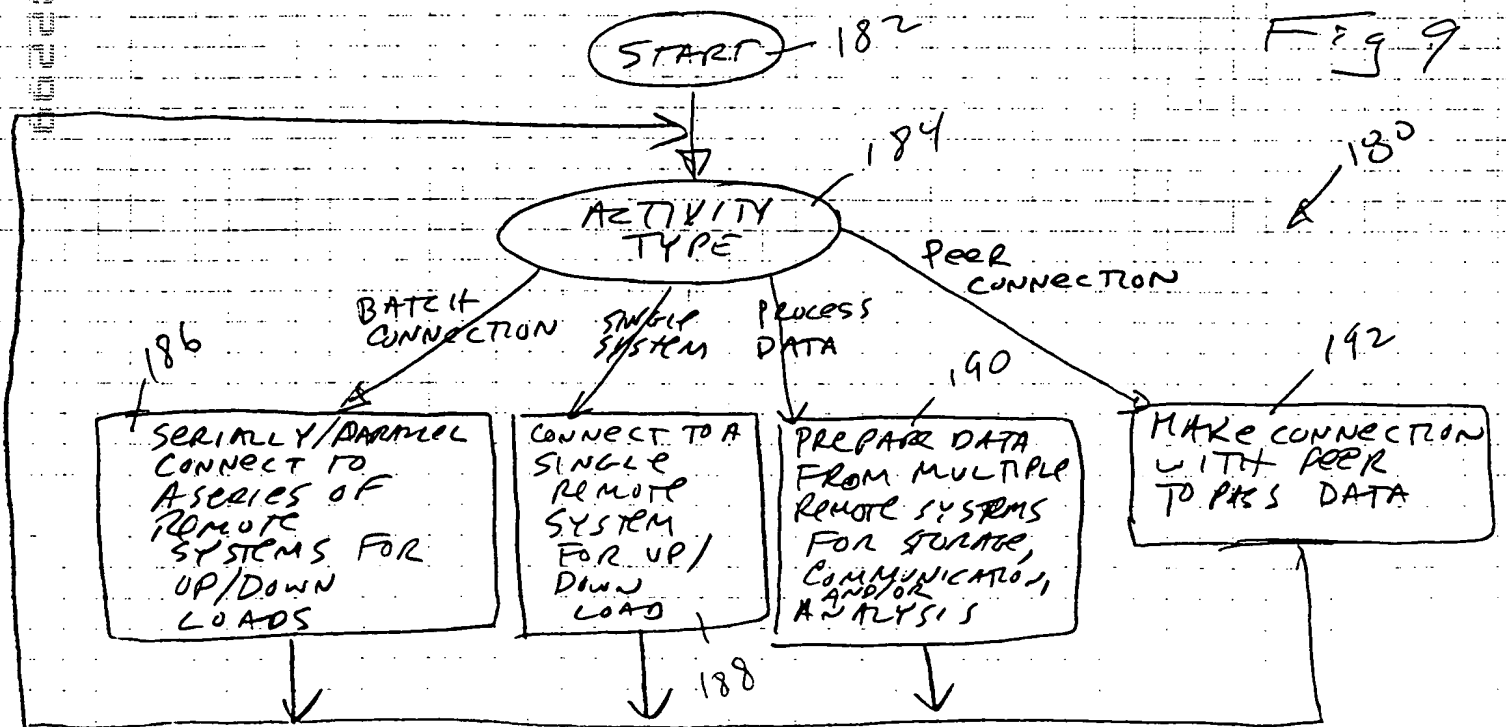 START
182
Fig 9
180
184
ACTIVITY
TYPE
PEER
CONNECTION
BATCH
CONNECTION
SINGLE
SYSTEM
PROCESS
DATA
186
190
192
SERIALLY/PARALLEL
CONNECT TO
A SERIES OF
REMOTE
SYSTEMS FOR
UP/DOWN
LOADS
CONNECT TO A
SINGLE
REMOTE
SYSTEM
FOR UP/
DOWN
LOAD
188
PREPARE DATA
FROM MULTIPLE
REMOTE SYSTEMS
FOR STORAGE,
COMMUNICATION,
AND/OR
ANALYSIS
MAKE CONNECTION
WITH PEER
TO PASS DATA